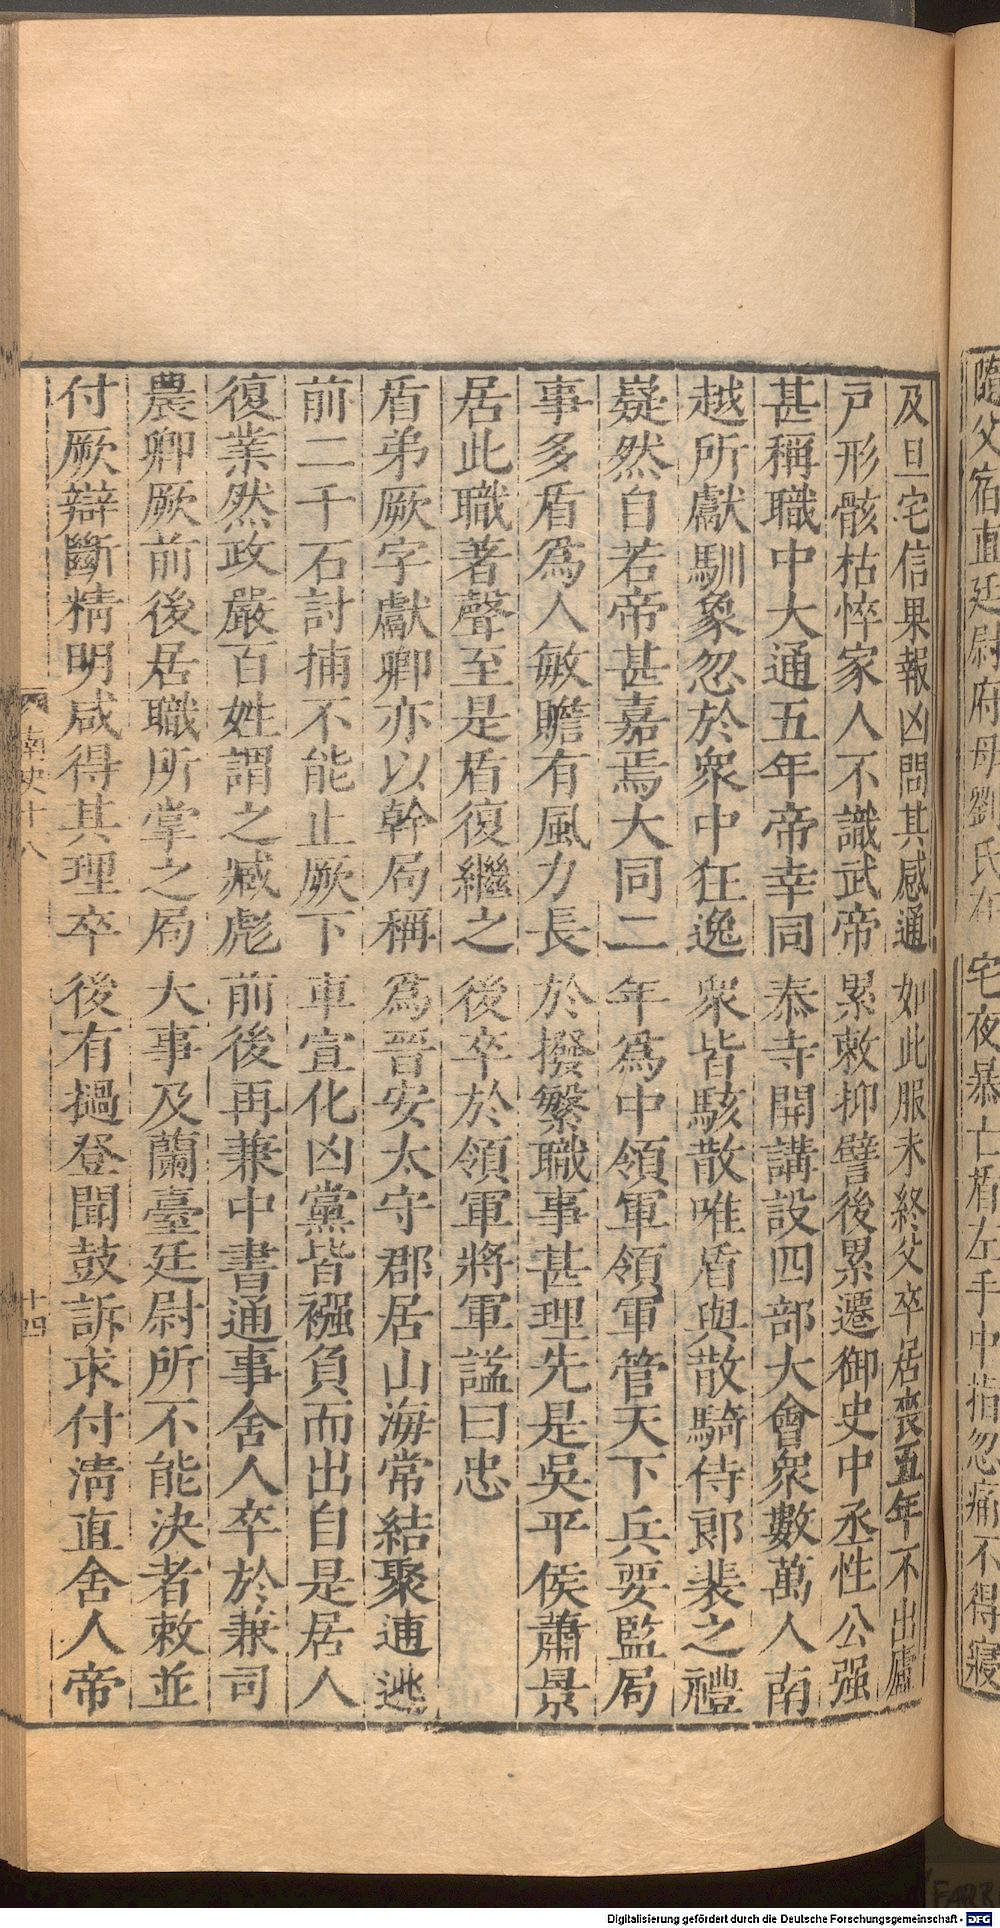 隨父宿直廷尉府母劉氏在宅夜暴亡盾左手中指忽痛不得寢
及旦宅信果報凶問其感通如此服未終父卒居喪五年不出廬
戸形骸枯悴家人不識武帝累敕抑譬後累遷御史中丞性公强
甚稱職中大通五年帝幸同泰寺開講設四部大會衆數萬人南
越所獻馴象忽於衆中狂逸衆皆駭散唯盾與散騎侍郎裴之禮
嶷然自若帝甚嘉焉大同二年爲中領軍領軍管天下兵要監局
事多盾爲人敏贍有風力長於撥繁職事甚理先是吳平侯蕭景
居此職著聲至是盾復繼之後卒於領軍將軍謚曰忠
盾弟厥字獻卿亦以幹局稱爲晉安太守郡居山海常結聚逋逃
前二千石討捕不能止厥下車宣化凶黨皆襁負而出自是居人
復業然政嚴百姓謂之臧彪前後再兼中書通事舍人卒於兼司
農卿厥前後居職所掌之局大事及蘭臺廷尉所不能決者敕並
付厥辯斷精明咸得其理卒後有撾登聞鼓訴求付清直舍人帝
南史十八
十四
Digitalisierung gefördert durch die Deutsche Forschungsgemeinschaft - DFG